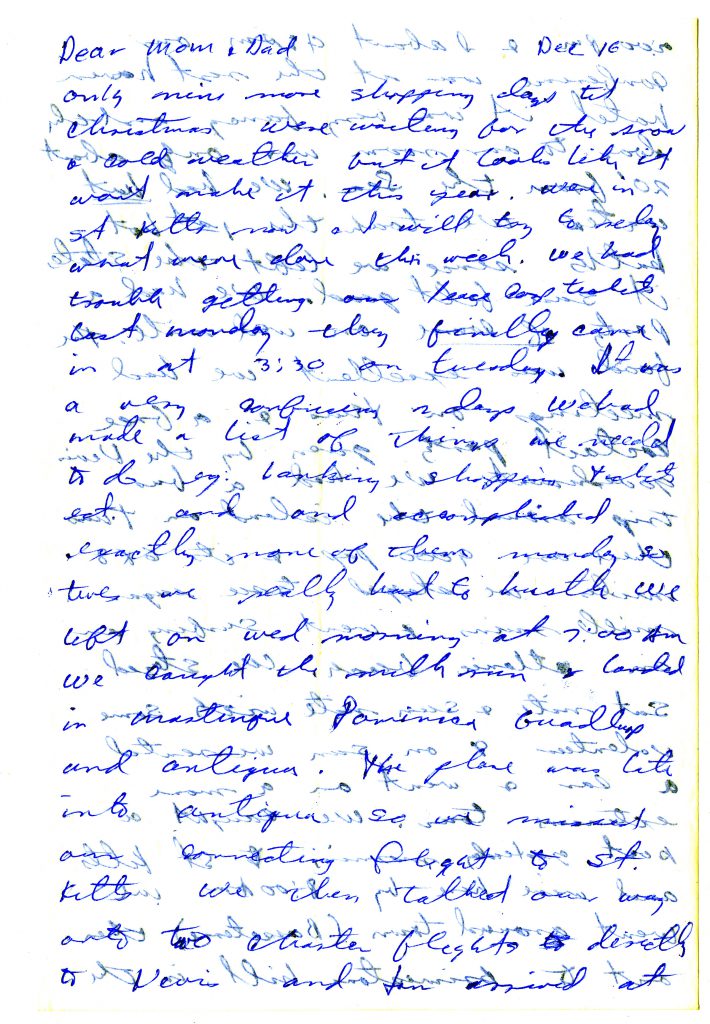 Dear Mom & Dad Dec 16
only nine more shopping days til
Christmas were waiting for the snow
& cold weather but it looks like it
wont make it this year. were in
st Kitts now & I will try to relay
what weve done this week. we had
trouble getting our leace cap tickets
last monday they finally came
in at 3:30 on tuesday. It was
a very confusing 2 days We had
made a list of things we needed
to do eg. banking shopping tickets
eat. and and accomplished
exactly none of them monday so
tues we really had to hustle We
left on wed morning at 7:00 Am
we caught the milk run & landed
in martinique Dominica Guadlup
and antigua. The plane was late
into antigua so we missed
our connecting flight to St.
Kitts. We then talked our way
onto two charter flights directly
to Nevis and Jim arrived at